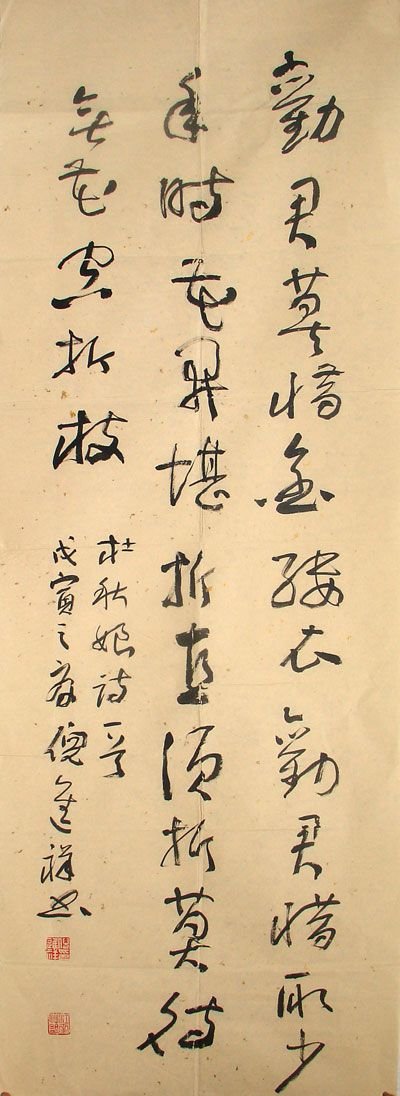 勸君莫惜金縷衣勸君惜取少
年時花開堪折直須折莫待
無花空折枝
杜秋娘詩一首
戊寅之春倪進祥书